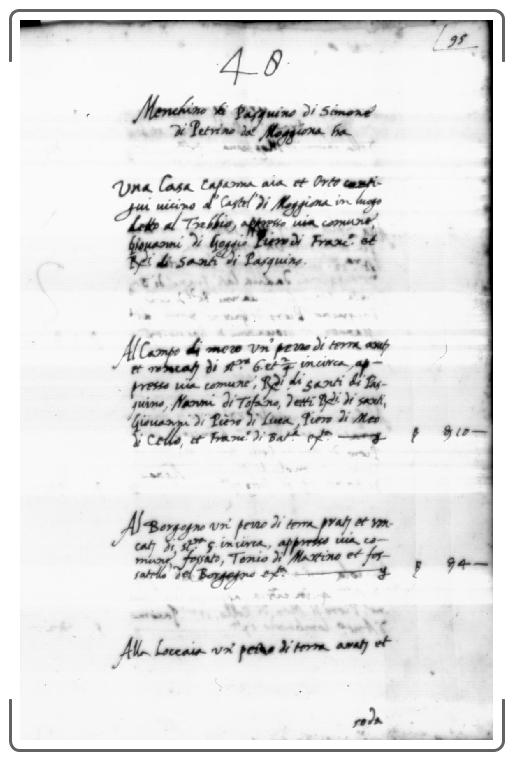 95
48
Menchino di Pasquino di Simone
di Petrino da Moggiona ha
Una Casa capanna aia et Orto conti-
gui vicino al Castel di Moggiona in luogo
detto al Trebbio, appresso via comune,
Giovanni di Goggio Piero di Franc.º et
Rᵈⁱ di Santi di Pasquino.
Al Campo di mero un' pezzo di terra arat
et roncat di st.ʳᵃ 6 et incirca, ap-
presso via comune, Rᵈⁱ di Santi di Pas-
quino, Nanni di Tofano, detti Rᵈⁱ di Santi,
Giovanni di Piero di Luca, Piero di Meo
di Cello, et Franc.º di Bat.ᵃ
10 —
Al Borgogno un' pezzo di terra prat et ron-
cat di st.ʳᵃ 5 incirca, appresso via co-
mune, fossato, Tonio di Martino et fos-
satello del Borgogno
4 —
Alla Loccaia un' pezzo di terra arat et
soda